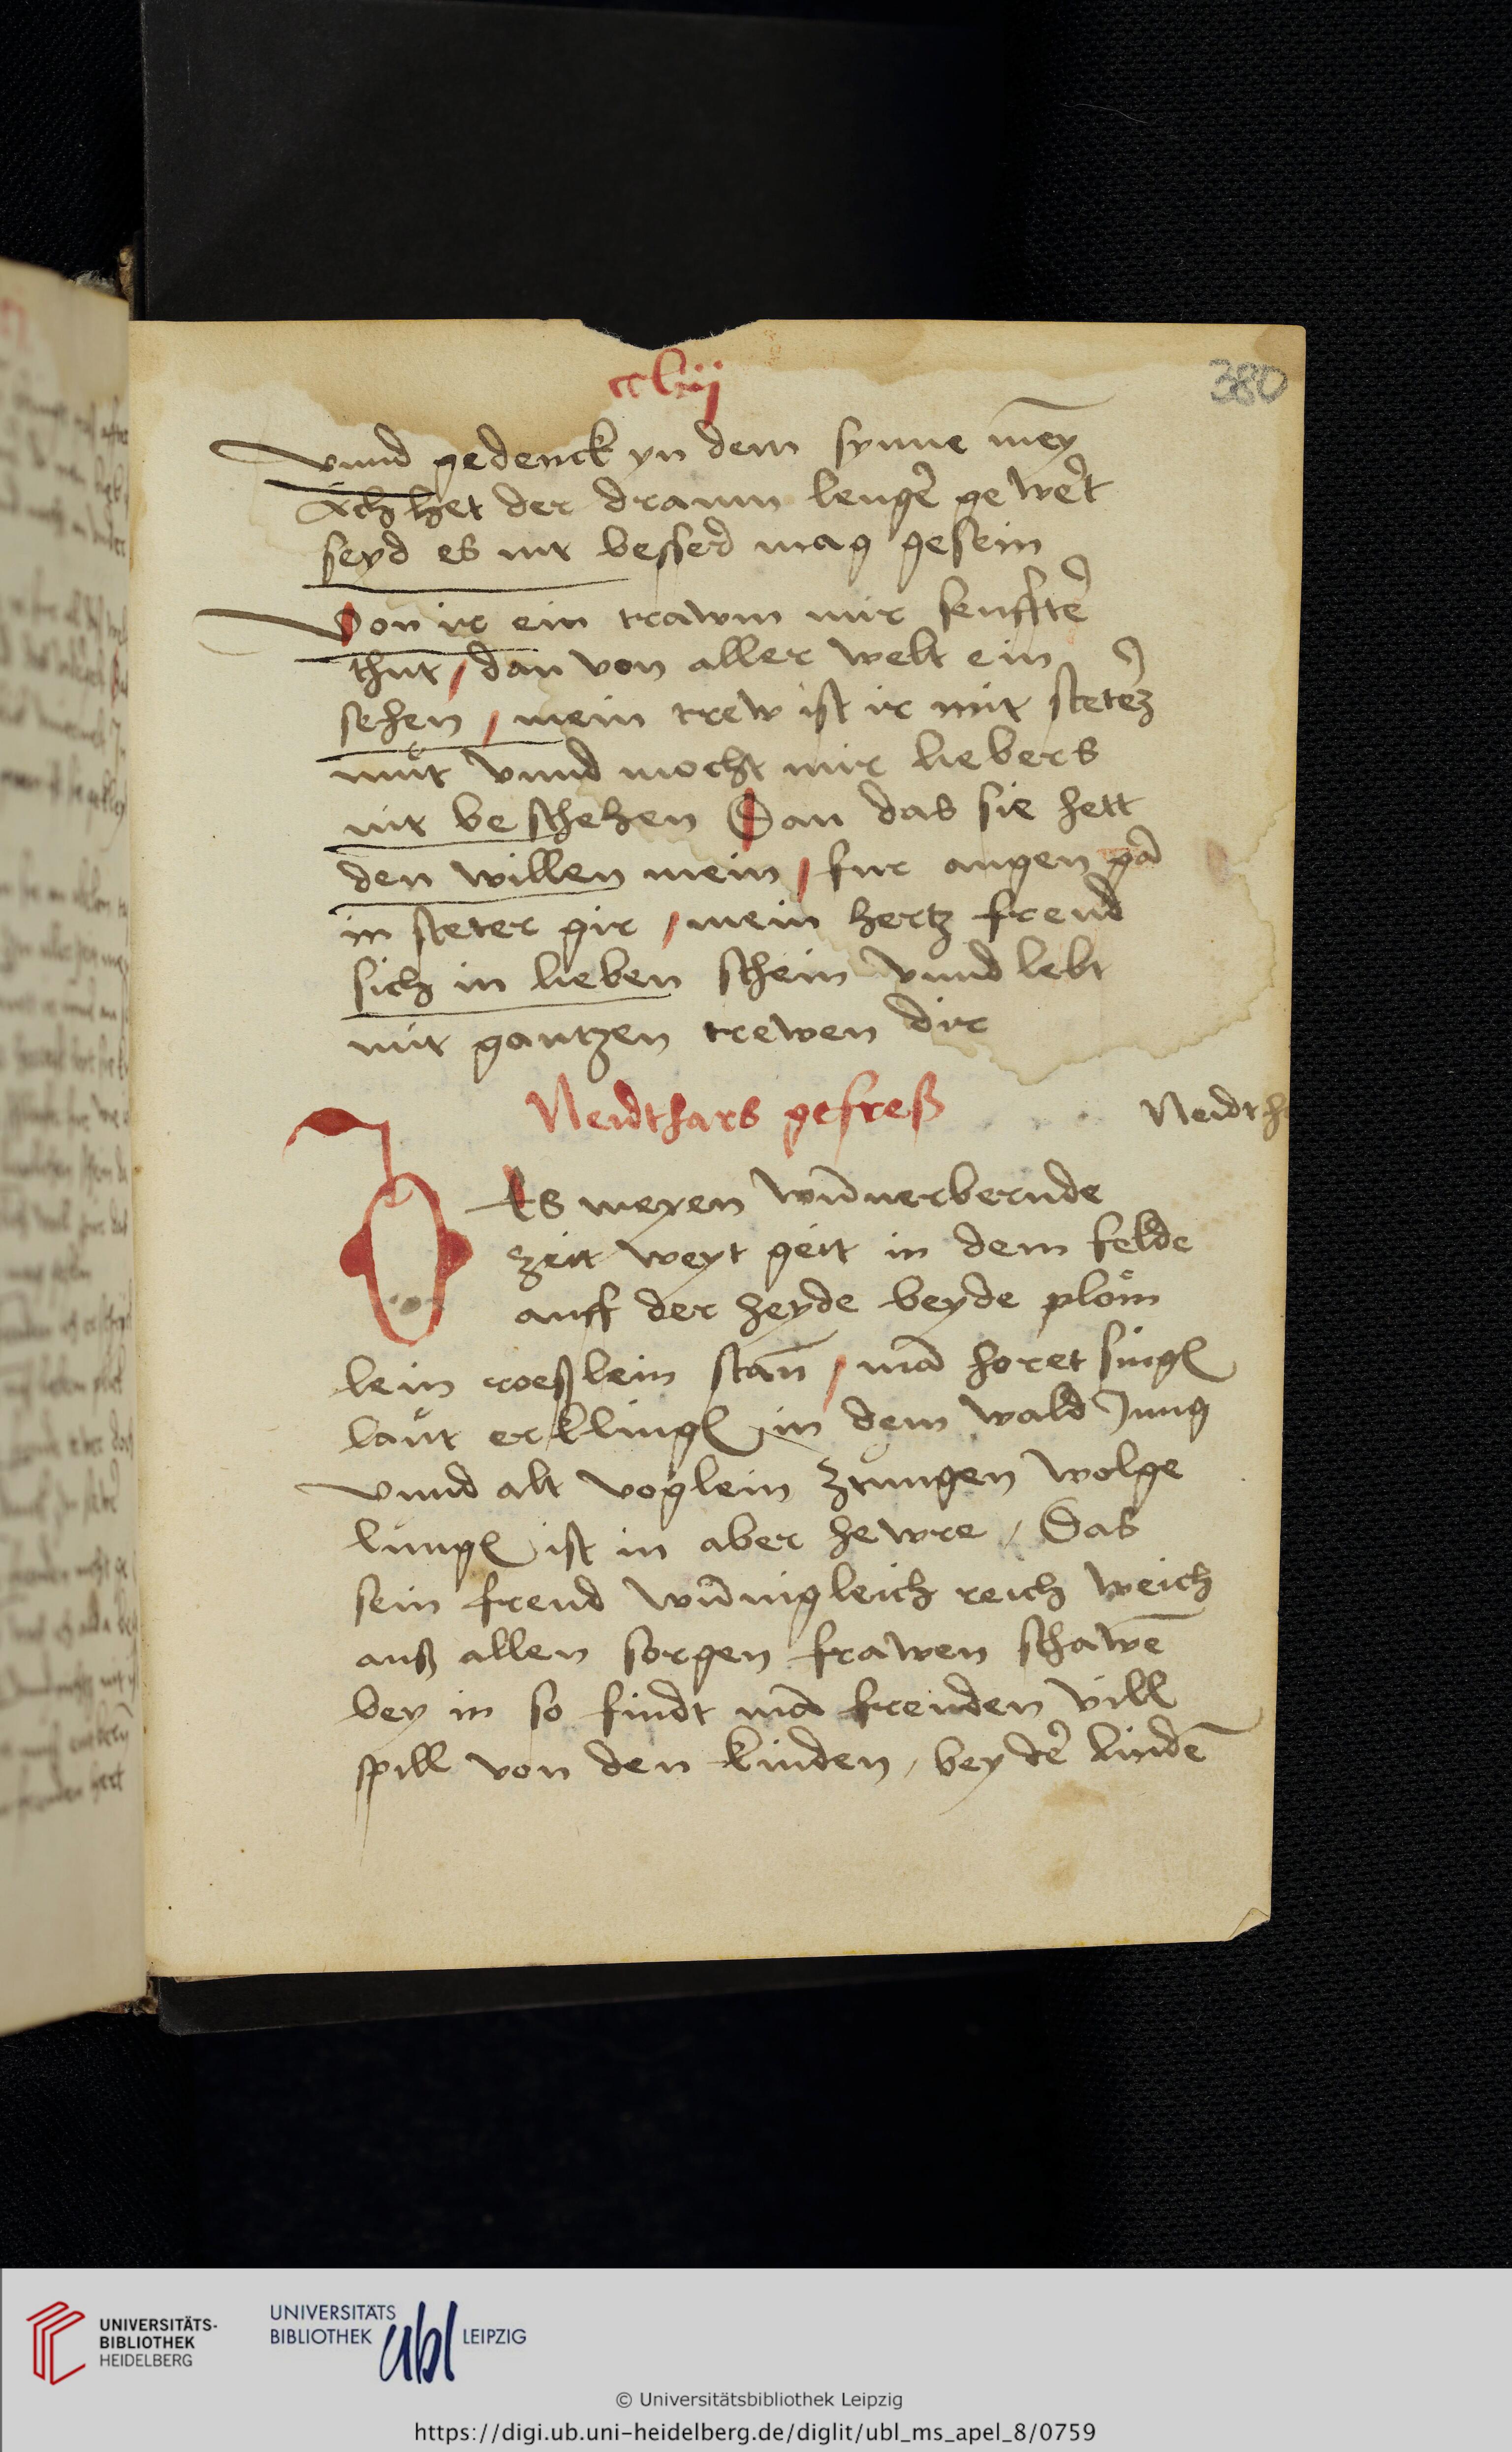 cclxij
380
vnnd gedenck yn dem synne mey
Ach het der draum lengẻ gewẻt
seyd es nit besserd mag gesein
Von ir ein trawm mir senfftẻ
thut / dan von aller welt ein
sehen / mein trew ist ir mit stetẻ
můt vnnd mocht mir liebers
nit be schehen Dan das sie hett
den willen mein / fur augen gā
in steter gir / mein hertz freud
sich in lieben schein vnnd lebt
mit gantzen trewen dir
Neidthars gefreß
Neidth
Des meyen wūnerbernde
zeit weyt geit in dem felde
auff der heyde beyde ploͤm
lein roeßlein stan̄ / mā horet singen
laut erklingen in dem wald Jung
vnnd alt voglein zcungen wolge
lungen ist in aber hewre / Das
sein freud wūnigleich reich weich
auß allen sorgen frawen schawē
bey in so findt mā freuden vill
spill von den kinden / bey dẻ lindē
UNIVERSITÄTS-
BIBLIOTHEK
HEIDELBERG
UNIVERSITÄTS
BIBLIOTHEK ubl LEIPZIG
© Universitätsbibliothek Leipzig
https://digi.ub.uni-heidelberg.de/diglit/ubl_ms_apel_8/0759